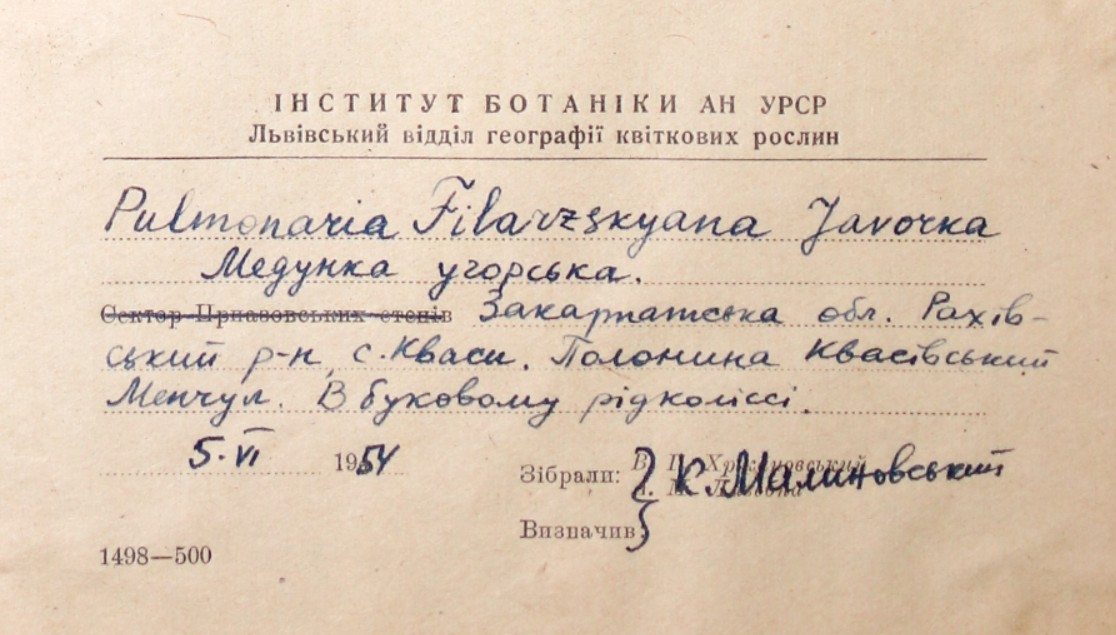 ІНСТИТУТ БОТАНІКИ АН УРСР
Львівський відділ географії квіткових рослин
Pulmonaria Filarzskyana Javorka
Медунка угорська.
Сектор Приазовських степів Закарпатська обл. Рахів-
ський р-н, с. Кваси. Полонина Квасівський
Менчул. В букововому рідколіссі.
5.VI 1954
Зібрали: К. Малиновський
Визначив
1498—500